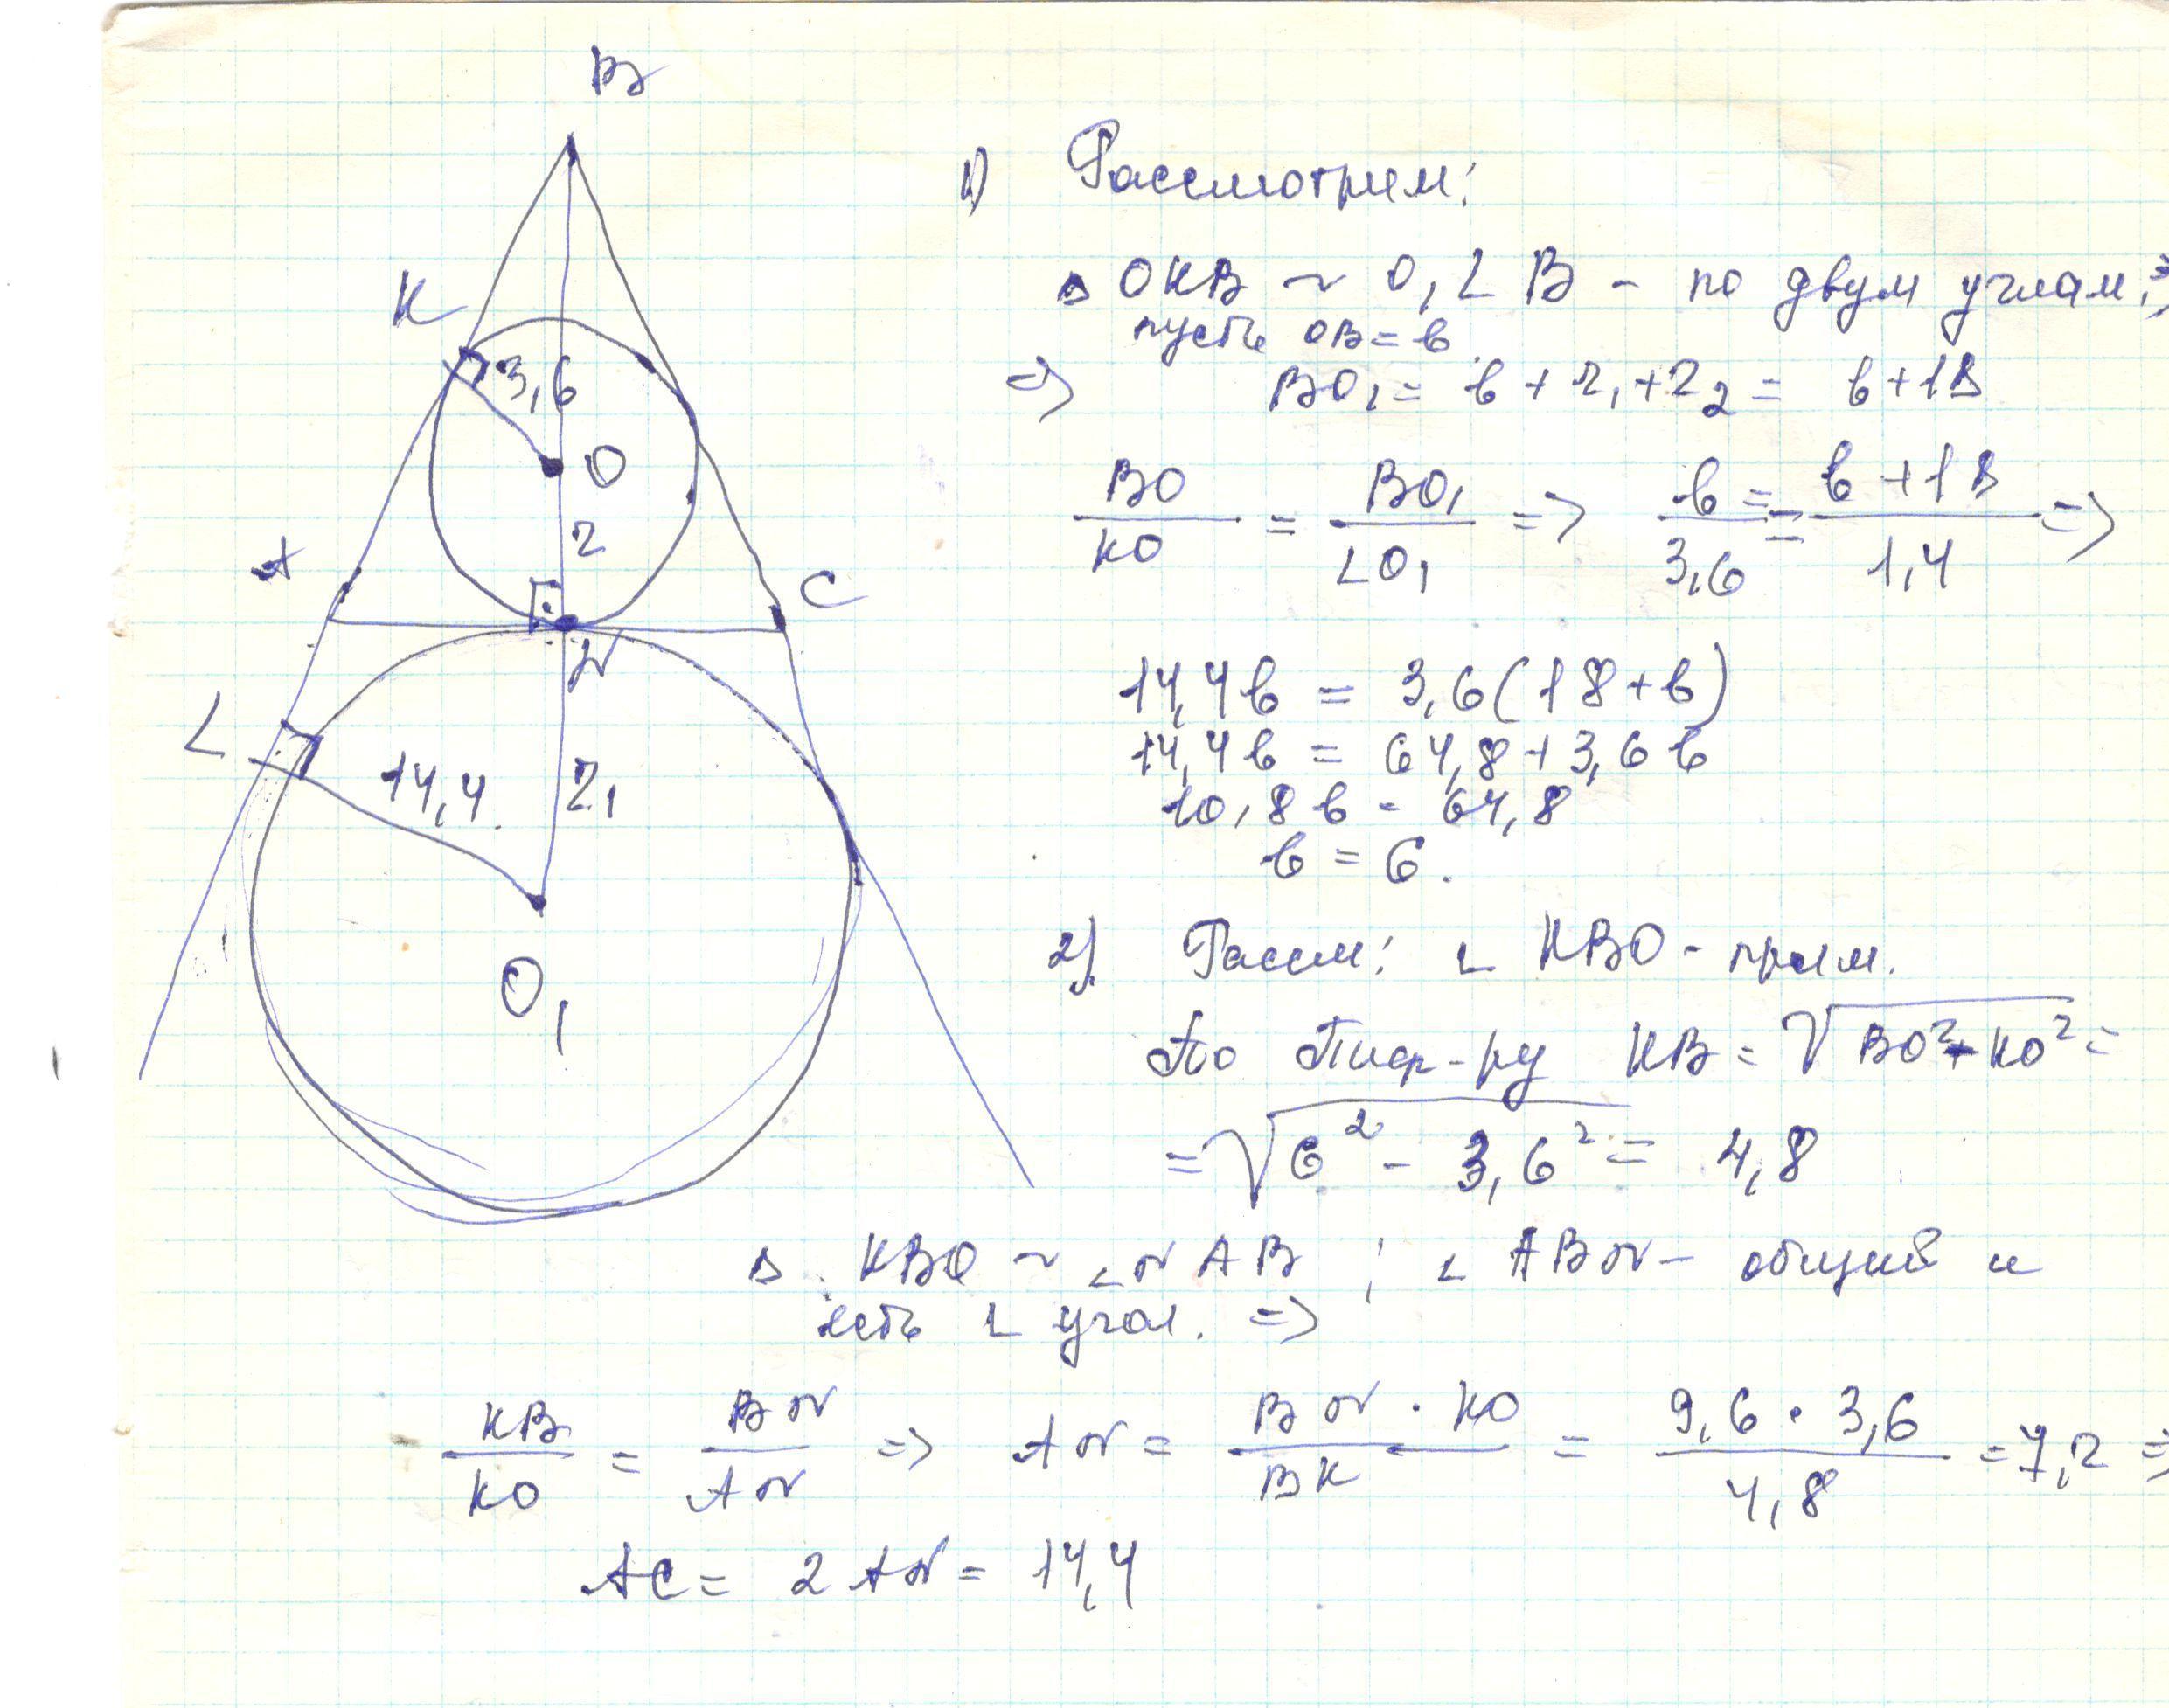 B
1) Рассмотрим:
K
△ OKB ~ O₁LB - по двум углам. =>
пусть OB = b.
=> BO₁ = b + r₁ + r₂ = b + 18
3,6
O
BO/KO = BO₁/LO₁ => b/3,6 = b + 18/1,4 =>
r
A
C
N
14,4b = 3,6(18+b)
L
14,4b = 64,8 + 3,6b
14,4
r₁
10,8b = 64,8
b = 6.
2). Рассм: ∟ KBO - прям.
O₁
По Пиф-ру KB = √BO² - KO² =
= √6² - 3,6² = 4,8
△ KBO ~ ∟ NAB ; ∠ ABN - общий и
есть ∟ угол. =>
KB/KO = BN/AN => AN = BN · KO/BK = 9,6 · 3,6/4,8 = 7,2 =>
AC = 2 AN = 14,4